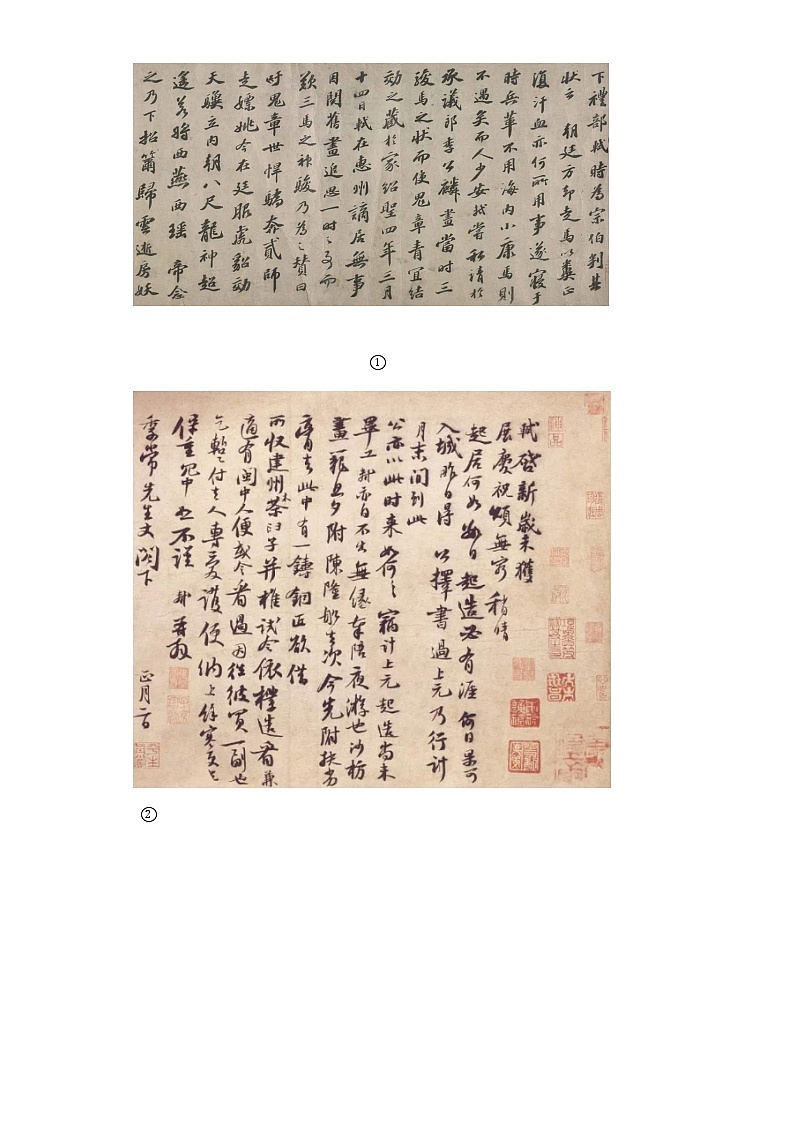 下禮部軾時為宗伯判其
狀云朝廷方却走馬以糞正
復汗血亦何所用事遂寢于
時兵革不用海內小康馬則
不遇矣而人少安軾嘗私請於
承議郎李公麟畫當时三
駿馬之状而使鬼章青宜结
効之藏於家紹聖四年三月
十四日軾在惠州謫居無事
因閱舊畫追思一时之事而
歎三馬之神駿乃為之贊曰
吁鬼章世悍驕奔貳師
走嫖姚今在廷服虎貂効
天驥立内朝八尺龍神超
遥若將西燕西瑶帝念
之乃下招籋歸雲逝房妖
①
軾啓新歲未獲
展慶祝頌無窮稍晴
起居何如數日起造必有涯何日果可
入城昨日得公擇書過上元乃行計
月末間到此
公亦以此时来如何之竊计上元起造尚未
畢工軾亦自不出無緣奉陪夜游也沙枋
畫籠旦夕附陳隆船去次今先附扶劣
膏去此中有一鑄銅匠欲借
所收建州木茶臼子并椎試令依樣造看兼
適有閩中人便或令看過因往彼買一副也
乞暫付去人專爱護便納上餘寒更乞
保重冗中恕不謹軾再拜
季常先生丈閣下
正月二日
②